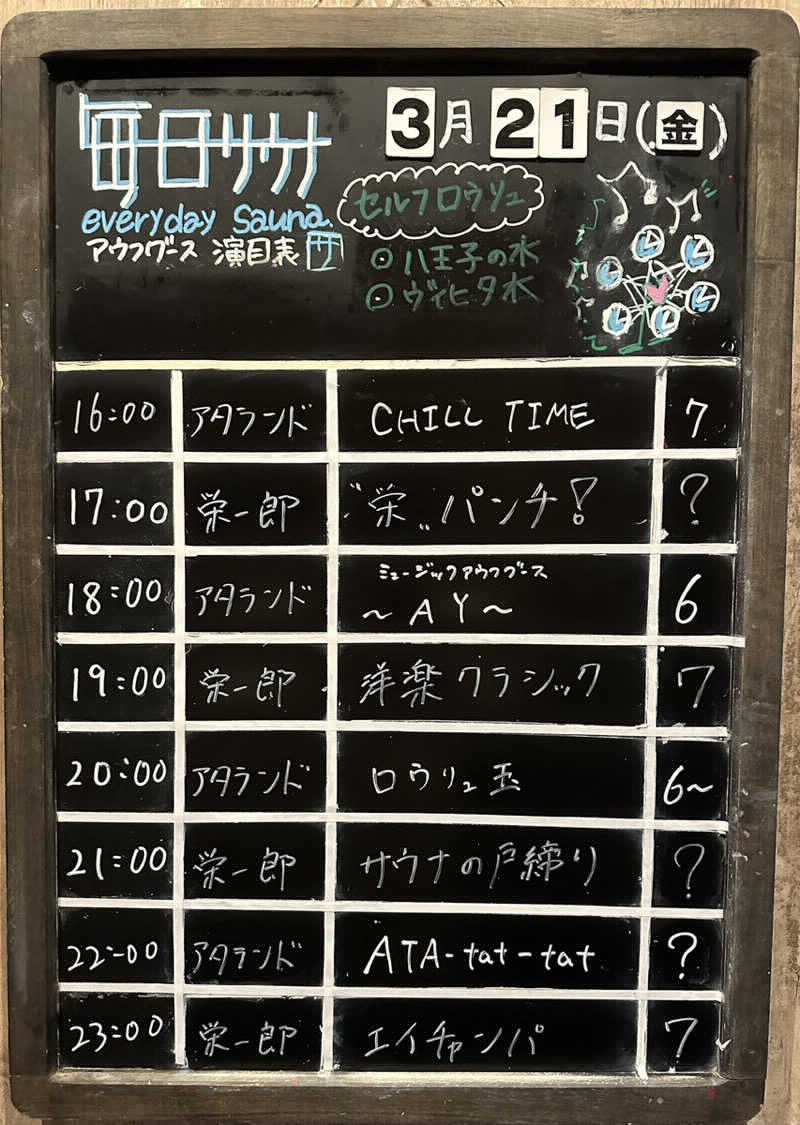 毎日サウナ
3月21日(金)
everyday Sauna.
アウフグース 演目表 サ
セルフロウリュ
◎八王子の水
◎ヴィヒタ水
16:00 アタランド CHILL TIME 7
17:00 栄一郎 "栄"パンチ! ?
ミュージックアウフグース
18:00 アタランド ~AY~ 6
19:00 栄一郎 洋楽クラシック 7
20:00 アタランド ロウリュ玉 6~
21:00 栄一郎 サウナの戸締り ?
22:00 アタランド ATA-tat-tat ?
23:00 栄一郎 エイチャンパ 7